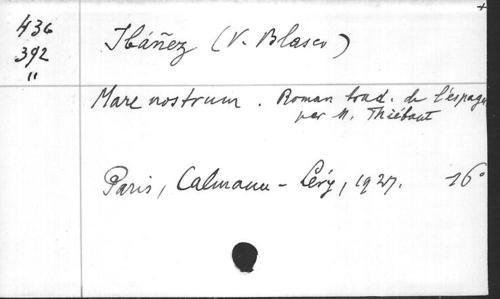 436
392
"
Ibáñez (V. Blasco)
Mare nostrum. Roman trad. de l'espagn
par M. Thiébaut
Paris, Calmann-Lévy, 1927. 16°
+